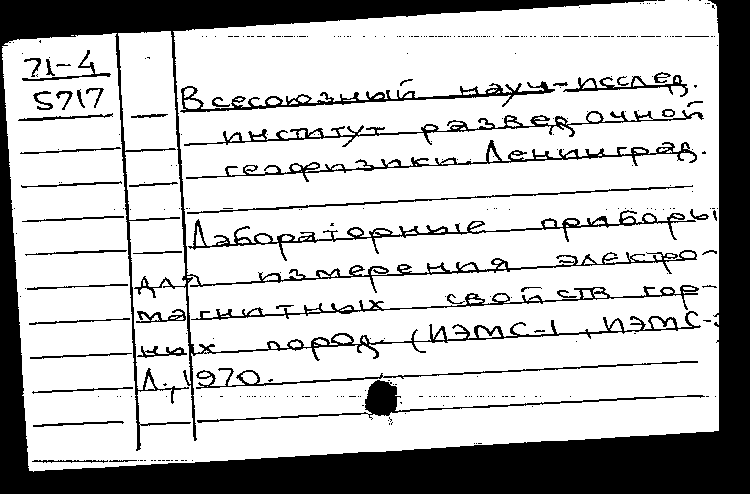 71-4
5717
Всесоюзный науч-исслед.
институт разведочной
геофизики. Ленинград.
Лабораторные приборы
для измерения электро-
магнитных свойств гор-
ных пород. (ИЭМС-1, ИЭМС-
Л., 1970.